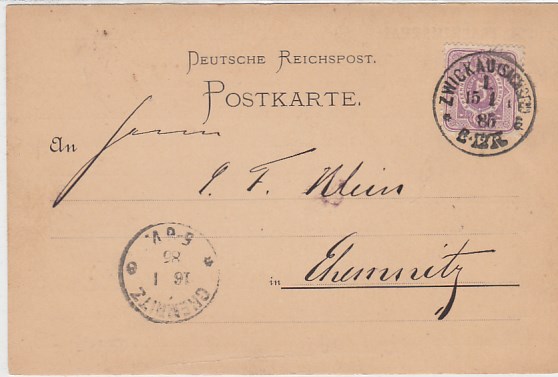 DEUTSCHE REICHSPOST.
POSTKARTE.
An Herrn
C. F. Klein
in Chemnitz
ZWICKAU (SACHSEN)
1.
15 1
85
CHEMNITZ
16 1
5-8 V.